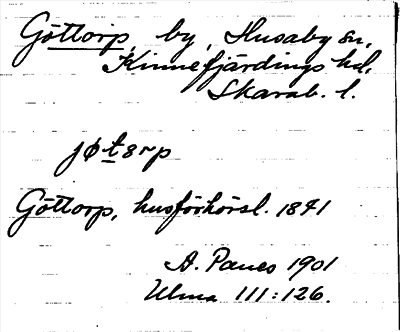 Göttorp, by, Husaby sn,
Kinnefjärdings hd.
Skarab. l.
jötorp
Göttorp, husförhörsl. 1841
A. Palues 1901
Ulma 111:126.